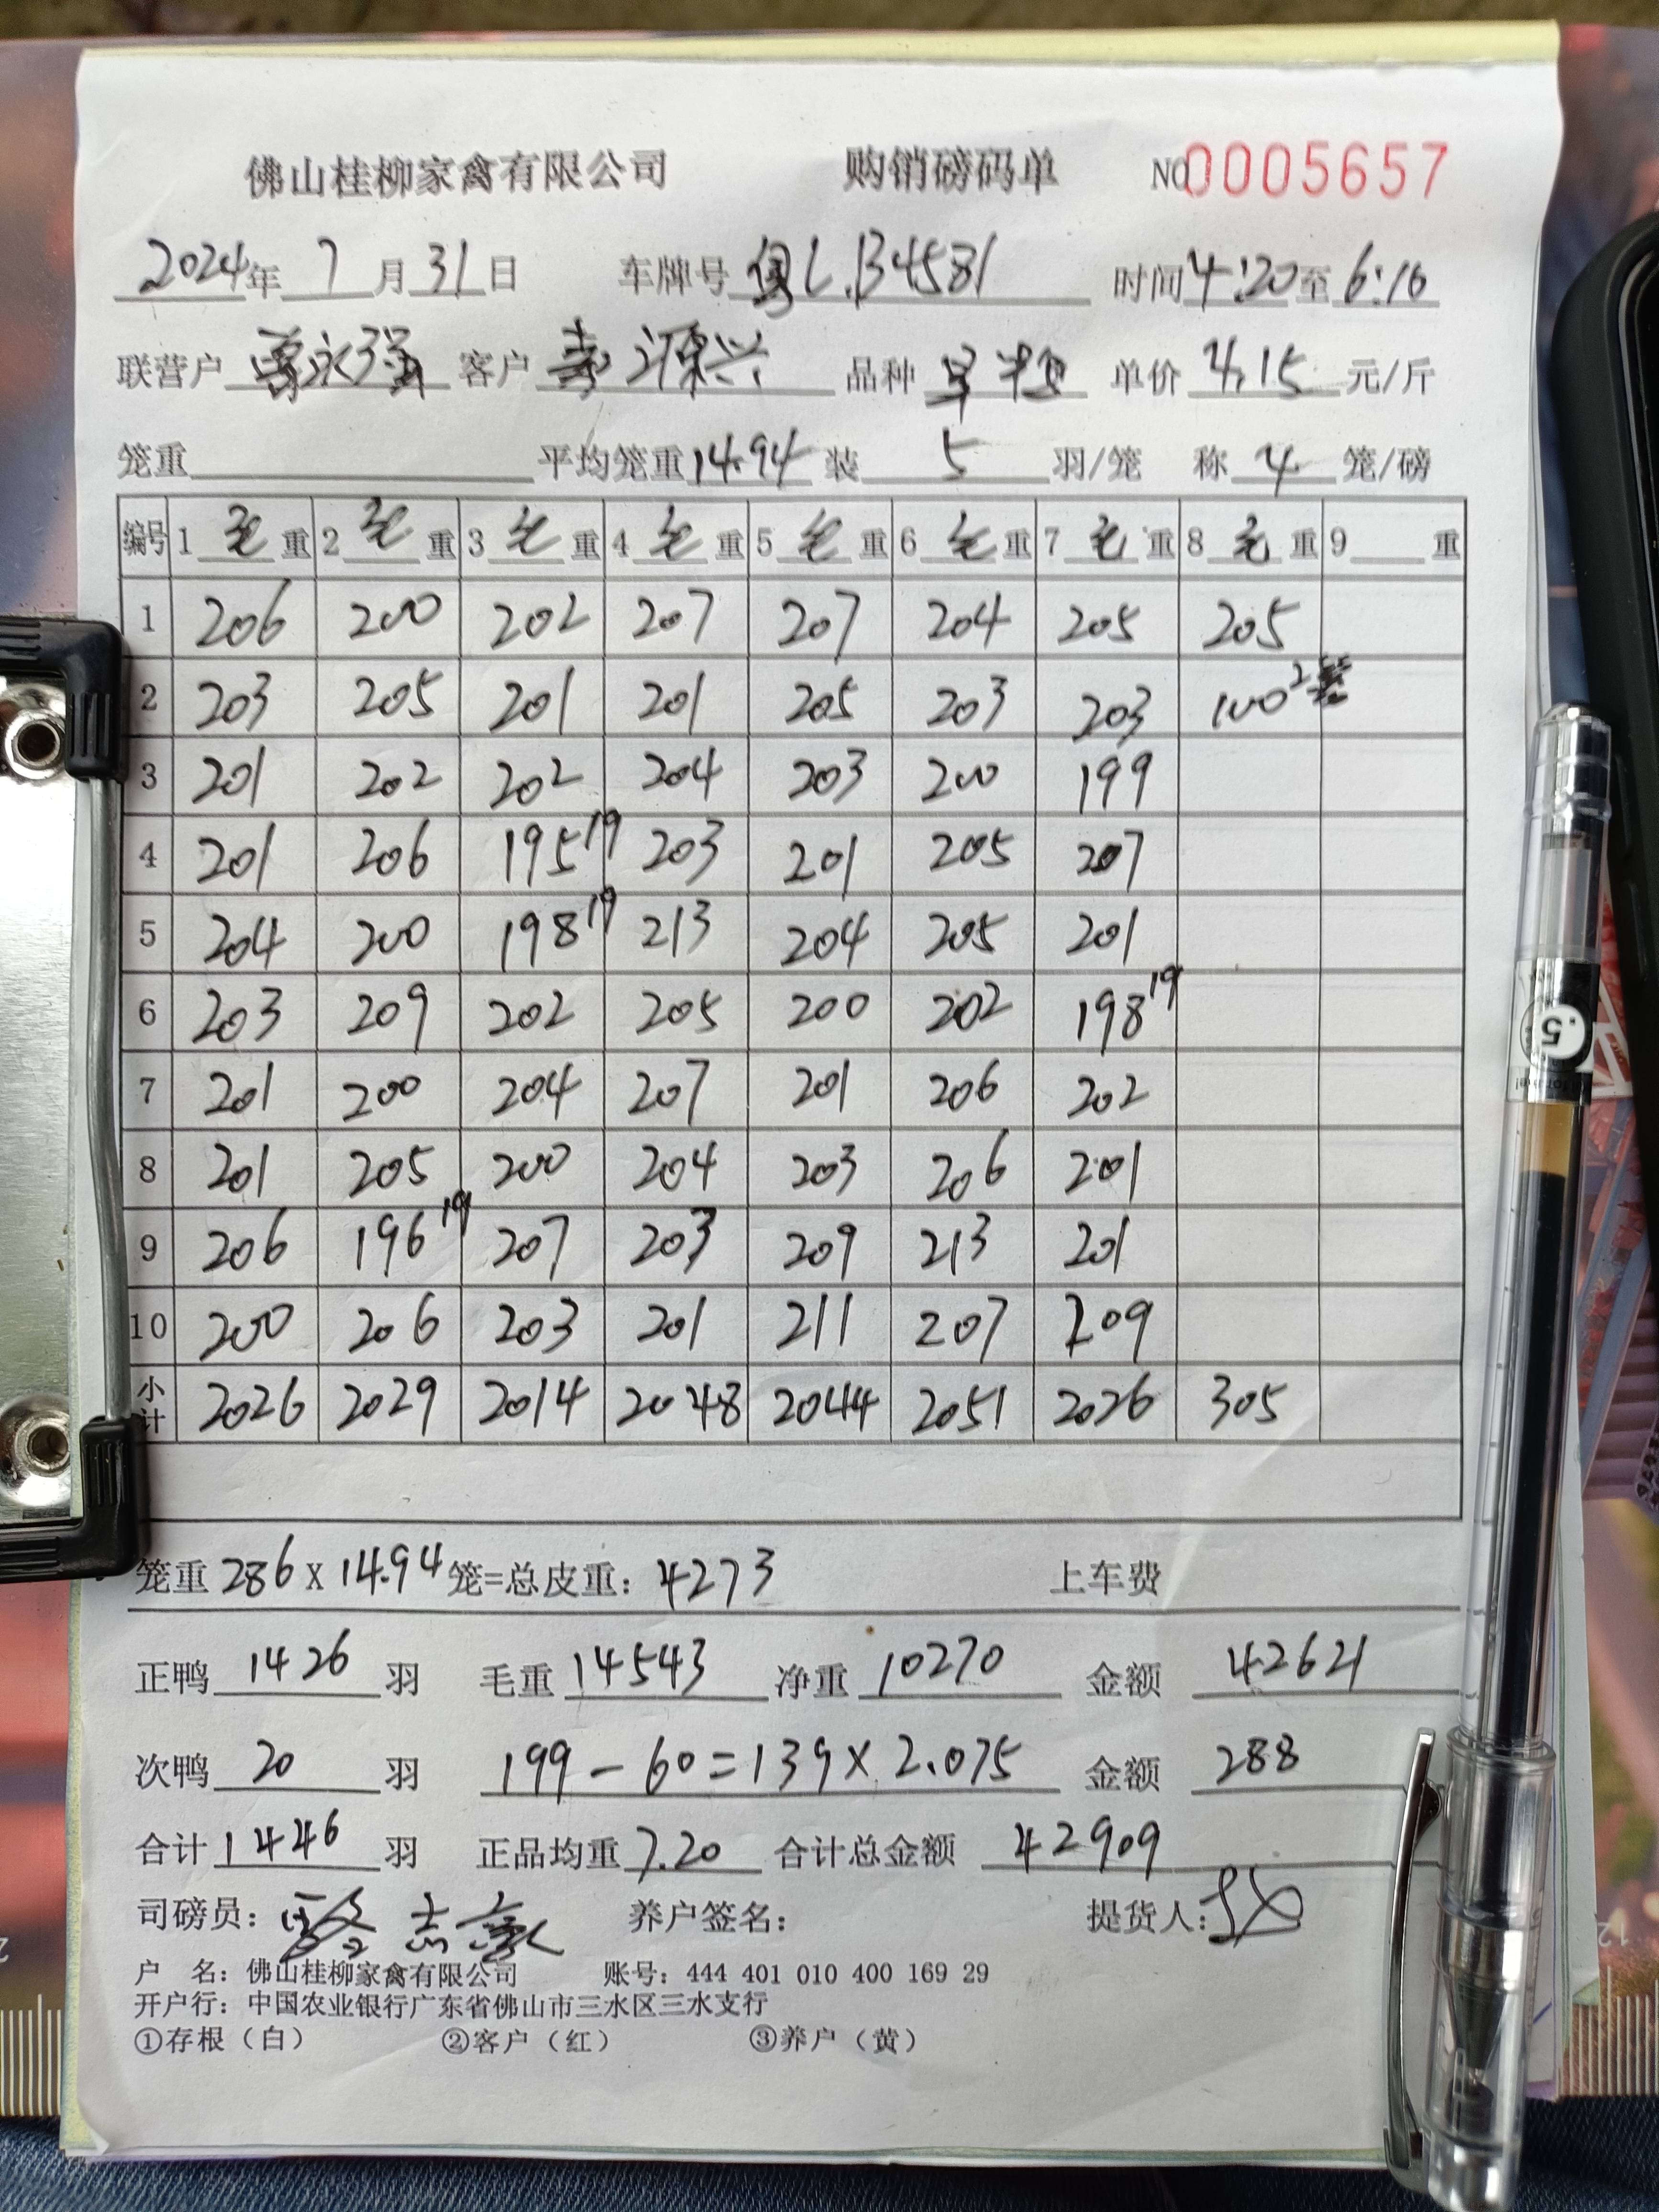 佛山桂柳家禽有限公司 购销磅码单 NO0005657
2024年 7月31日 车牌号 粤L.B4581 时间4:20至6:16
联营户 曾永强 客户 源兴 品种 单价 4.15 元/斤
笼重 平均笼重14.94 装 5 羽/笼 称 4 笼/磅
编号 1 毛 重 2 毛 重 3 毛 重 4 毛 重 5 毛 重 6 毛 重 7 毛 重 8 毛 重 9 重
1 206 200 202 207 207 204 205 205
2 203 205 201 201 205 203 203 100 2笼
3 201 202 202 204 203 200 199
4 201 206 195 19 203 201 205 207
5 204 200 198 19 213 204 205 201
6 203 209 202 205 200 202 198 19
7 201 200 204 207 201 206 202
8 201 205 200 204 203 206 201
9 206 196 19 207 203 209 213 201
10 200 206 203 201 211 207 209
小计 2026 2029 2014 2048 2044 2051 2026 305
笼重 286 x 14.94 笼=总皮重: 4273 上车费
正鸭 1426 羽 毛重 14543 净重 10270 金额 42621
次鸭 20 羽 199 - 60 = 139 x 2.075 金额 288
合计 1446 羽 正品均重 7.20 合计总金额 42909
司磅员: 养户签名: 提货人:
户 名: 佛山桂柳家禽有限公司 账号: 444 401 010 400 169 29
开户行: 中国农业银行广东省佛山市三水区三水支行
①存根（白） ②客户（红） ③养户（黄）